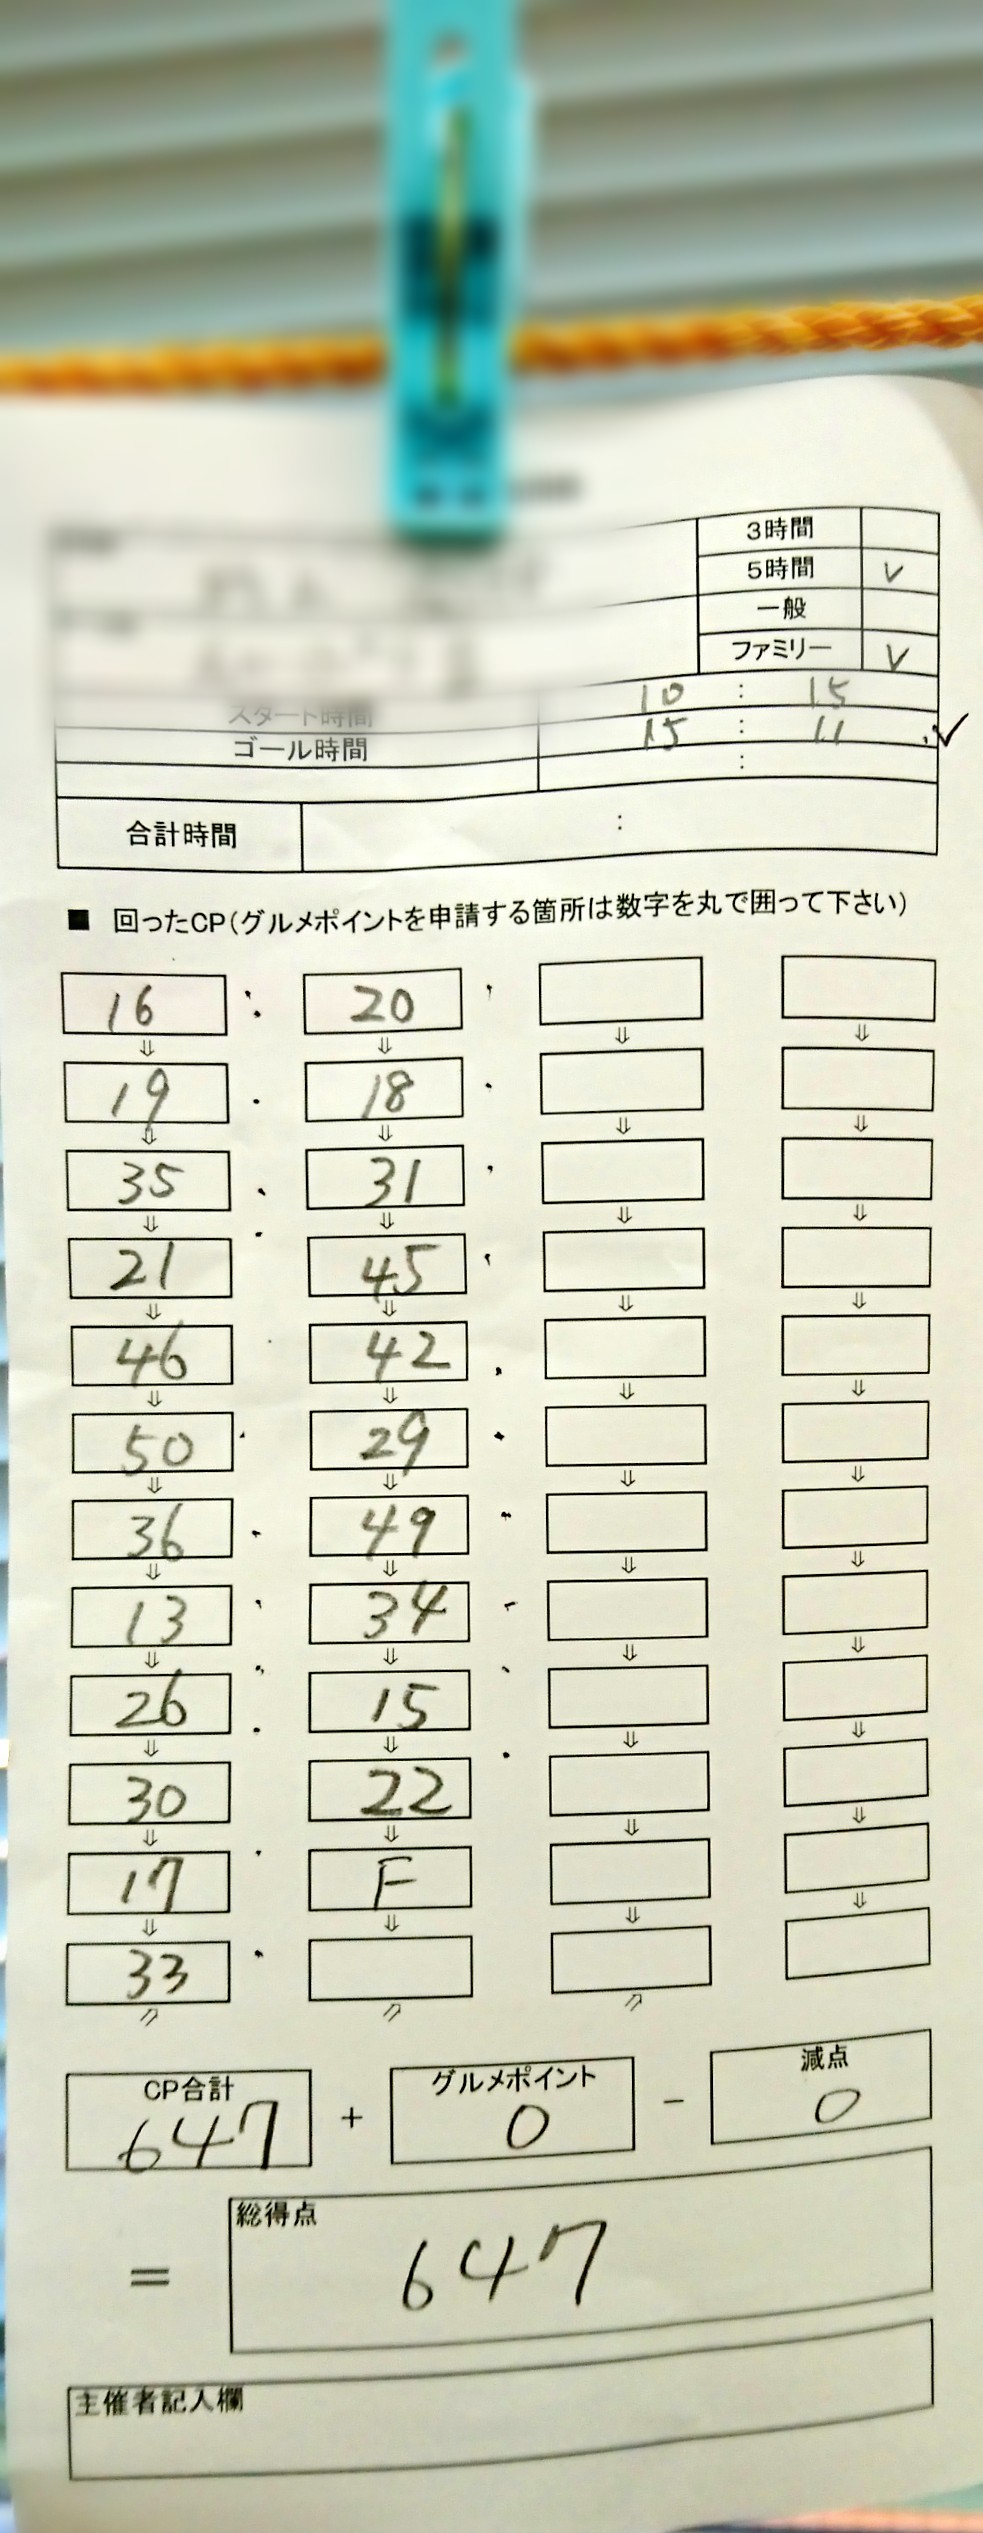 3時間
5時間 ✓
一般
ファミリー ✓
スタート時間 10 : 15
ゴール時間 15 : 11 ✓
:
合計時間 :
■ 回ったCP(グルメポイントを申請する箇所は数字を丸で囲って下さい)
16 20
⇓ ⇓ ⇓ ⇓
19 18
⇓ ⇓ ⇓ ⇓
35 31
⇓ ⇓ ⇓ ⇓
21 45
⇓ ⇓ ⇓ ⇓
46 42
⇓ ⇓ ⇓ ⇓
50 29
⇓ ⇓ ⇓ ⇓
36 49
⇓ ⇓ ⇓ ⇓
13 34
⇓ ⇓ ⇓ ⇓
26 15
⇓ ⇓ ⇓ ⇓
30 22
⇓ ⇓ ⇓ ⇓
17 F
⇓ ⇓ ⇓ ⇓
33
⇗ ⇗ ⇗
CP合計 グルメポイント 減点
647 + 0 - 0
総得点
= 647
主催者記入欄